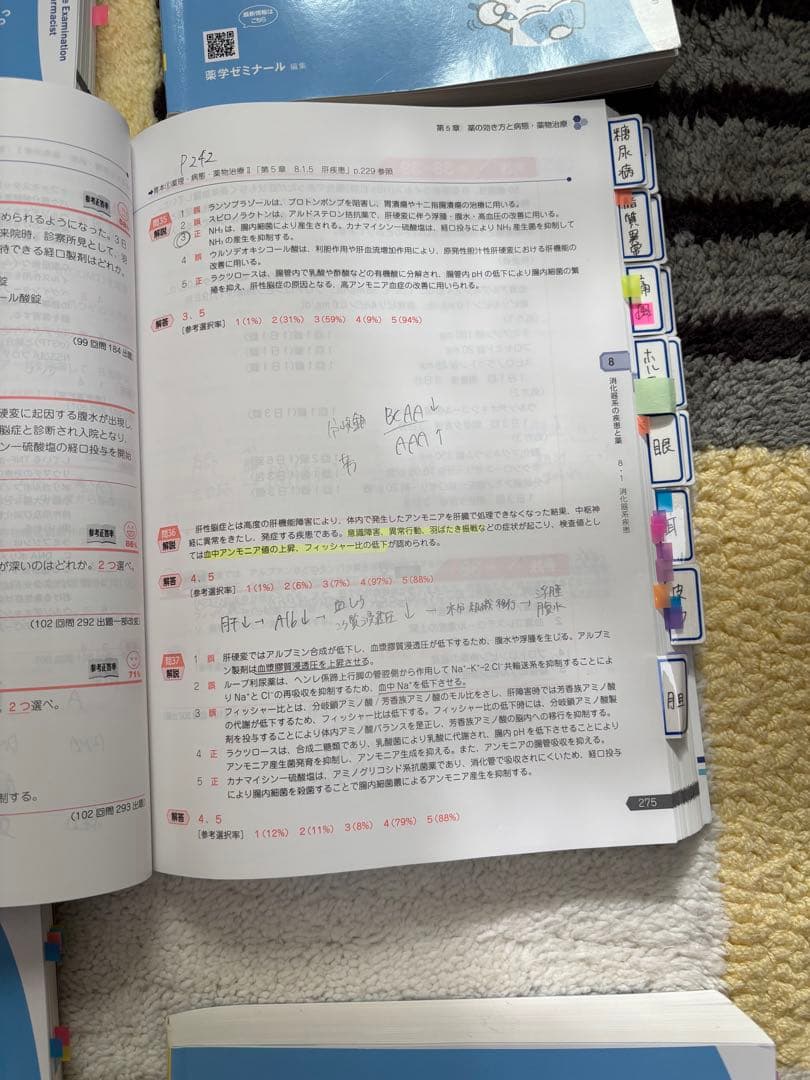 e Examination
armacist
最新情報は
こちら
薬学ゼミナール 編集
第5章 薬の効き方と病態・薬物治療
P.242
病態・薬物治療Ⅱ「第5章 8.1.5 肝疾患」p.229参照
問35
解説
1 誤 ランソプラゾールは、プロトンポンプを阻害し、胃潰瘍や十二指腸潰瘍の治療に用いる。
2 誤 スピロノラクトンは、アルドステロン拮抗薬で、肝硬変に伴う浮腫・腹水・高血圧の改善に用いる。
3 正 NH₃は、腸内細菌により産生される。カナマイシン一硫酸塩は、経口投与によりNH₃産生菌を抑制して
NH₃の産生を抑制する。
4 誤 ウルソデオキシコール酸は、利胆作用や肝血流増加作用により、原発性胆汁性肝硬変における肝機能の
改善に用いる。
5 正 ラクツロースは、腸管内で乳酸や酢酸などの有機酸に分解され、腸管内pHの低下により腸内細菌の繁
殖を抑え、肝性脳症の原因となる、高アンモニア血症の改善に用いられる。
解答
3、5
[参考選択率] 1(1%) 2(31%) 3(59%) 4(9%) 5(94%)
分岐鎖 BCAA↓
芳 AAA↑
問36
解説
肝性脳症とは高度の肝機能障害により、体内で発生したアンモニアを肝臓で処理できなくなった結果、中枢神
経に異常をきたし、発症する疾患である。意識障害、異常行動、羽ばたき振戦などの症状が起こり、検査値とし
ては血中アンモニア値の上昇、フィッシャー比の低下が認められる。
解答
4、5
[参考選択率] 1(1%) 2(6%) 3(7%) 4(97%) 5(88%)
肝↓→Alb↓→血しょう コロ質浸透圧↓→水分 組織移行→浮腫 腹水
問37
解説
1 誤 肝硬変ではアルブミン合成が低下し、血漿膠質浸透圧が低下するため、腹水や浮腫を生じる。アルブミ
ン製剤は血漿膠質浸透圧を上昇させる。
2 誤 ループ利尿薬は、ヘンレ係蹄上行脚の管腔側から作用してNa⁺-K⁺-2Cl⁻共輸送系を抑制することによ
りNa⁺とCl⁻の再吸収を抑制するため、血中Na⁺を低下させる。
3 誤 フィッシャー比とは、分岐鎖アミノ酸/芳香族アミノ酸のモル比をさし、肝障害時では芳香族アミノ酸
の代謝が低下するため、フィッシャー比は低下する。フィッシャー比の低下時には、分岐鎖アミノ酸製
剤を投与することにより体内アミノ酸バランスを是正し、芳香族アミノ酸の脳内への移行を抑制する。
4 正 ラクツロースは、合成二糖類であり、乳酸菌により乳酸に代謝され、腸内pHを低下させることにより
アンモニア産生菌発育を抑制し、アンモニア生成を抑える。また、アンモニアの腸管吸収を抑える。
5 正 カナマイシン一硫酸塩は、アミノグリコシド系抗菌薬であり、消化管で吸収されにくいため、経口投与
により腸内細菌を殺菌することで腸内細菌叢によるアンモニア産生を抑制する。
解答
4、5
[参考選択率] 1(12%) 2(11%) 3(8%) 4(79%) 5(88%)
275
8
消化器系の疾患と薬
8・1 消化器系疾患
糖尿病
脂質異常
痛風
ホル
眼
耳
胆
参考正答率
められるようになった。3日
来院時、診察所見として、羽
待できる経口製剤はどれか。
ール酸錠
(99回問184出題)
硬変に起因する腹水が出現し、
脳症と診断され入院となり、
シン一硫酸塩の経口投与を開始
参考正答率
86%
が深いのはどれか。2つ選べ。
(102回問292出題一部改変)
参考正答率
71%
、2つ選べ。
制する。
(102回問293出題)